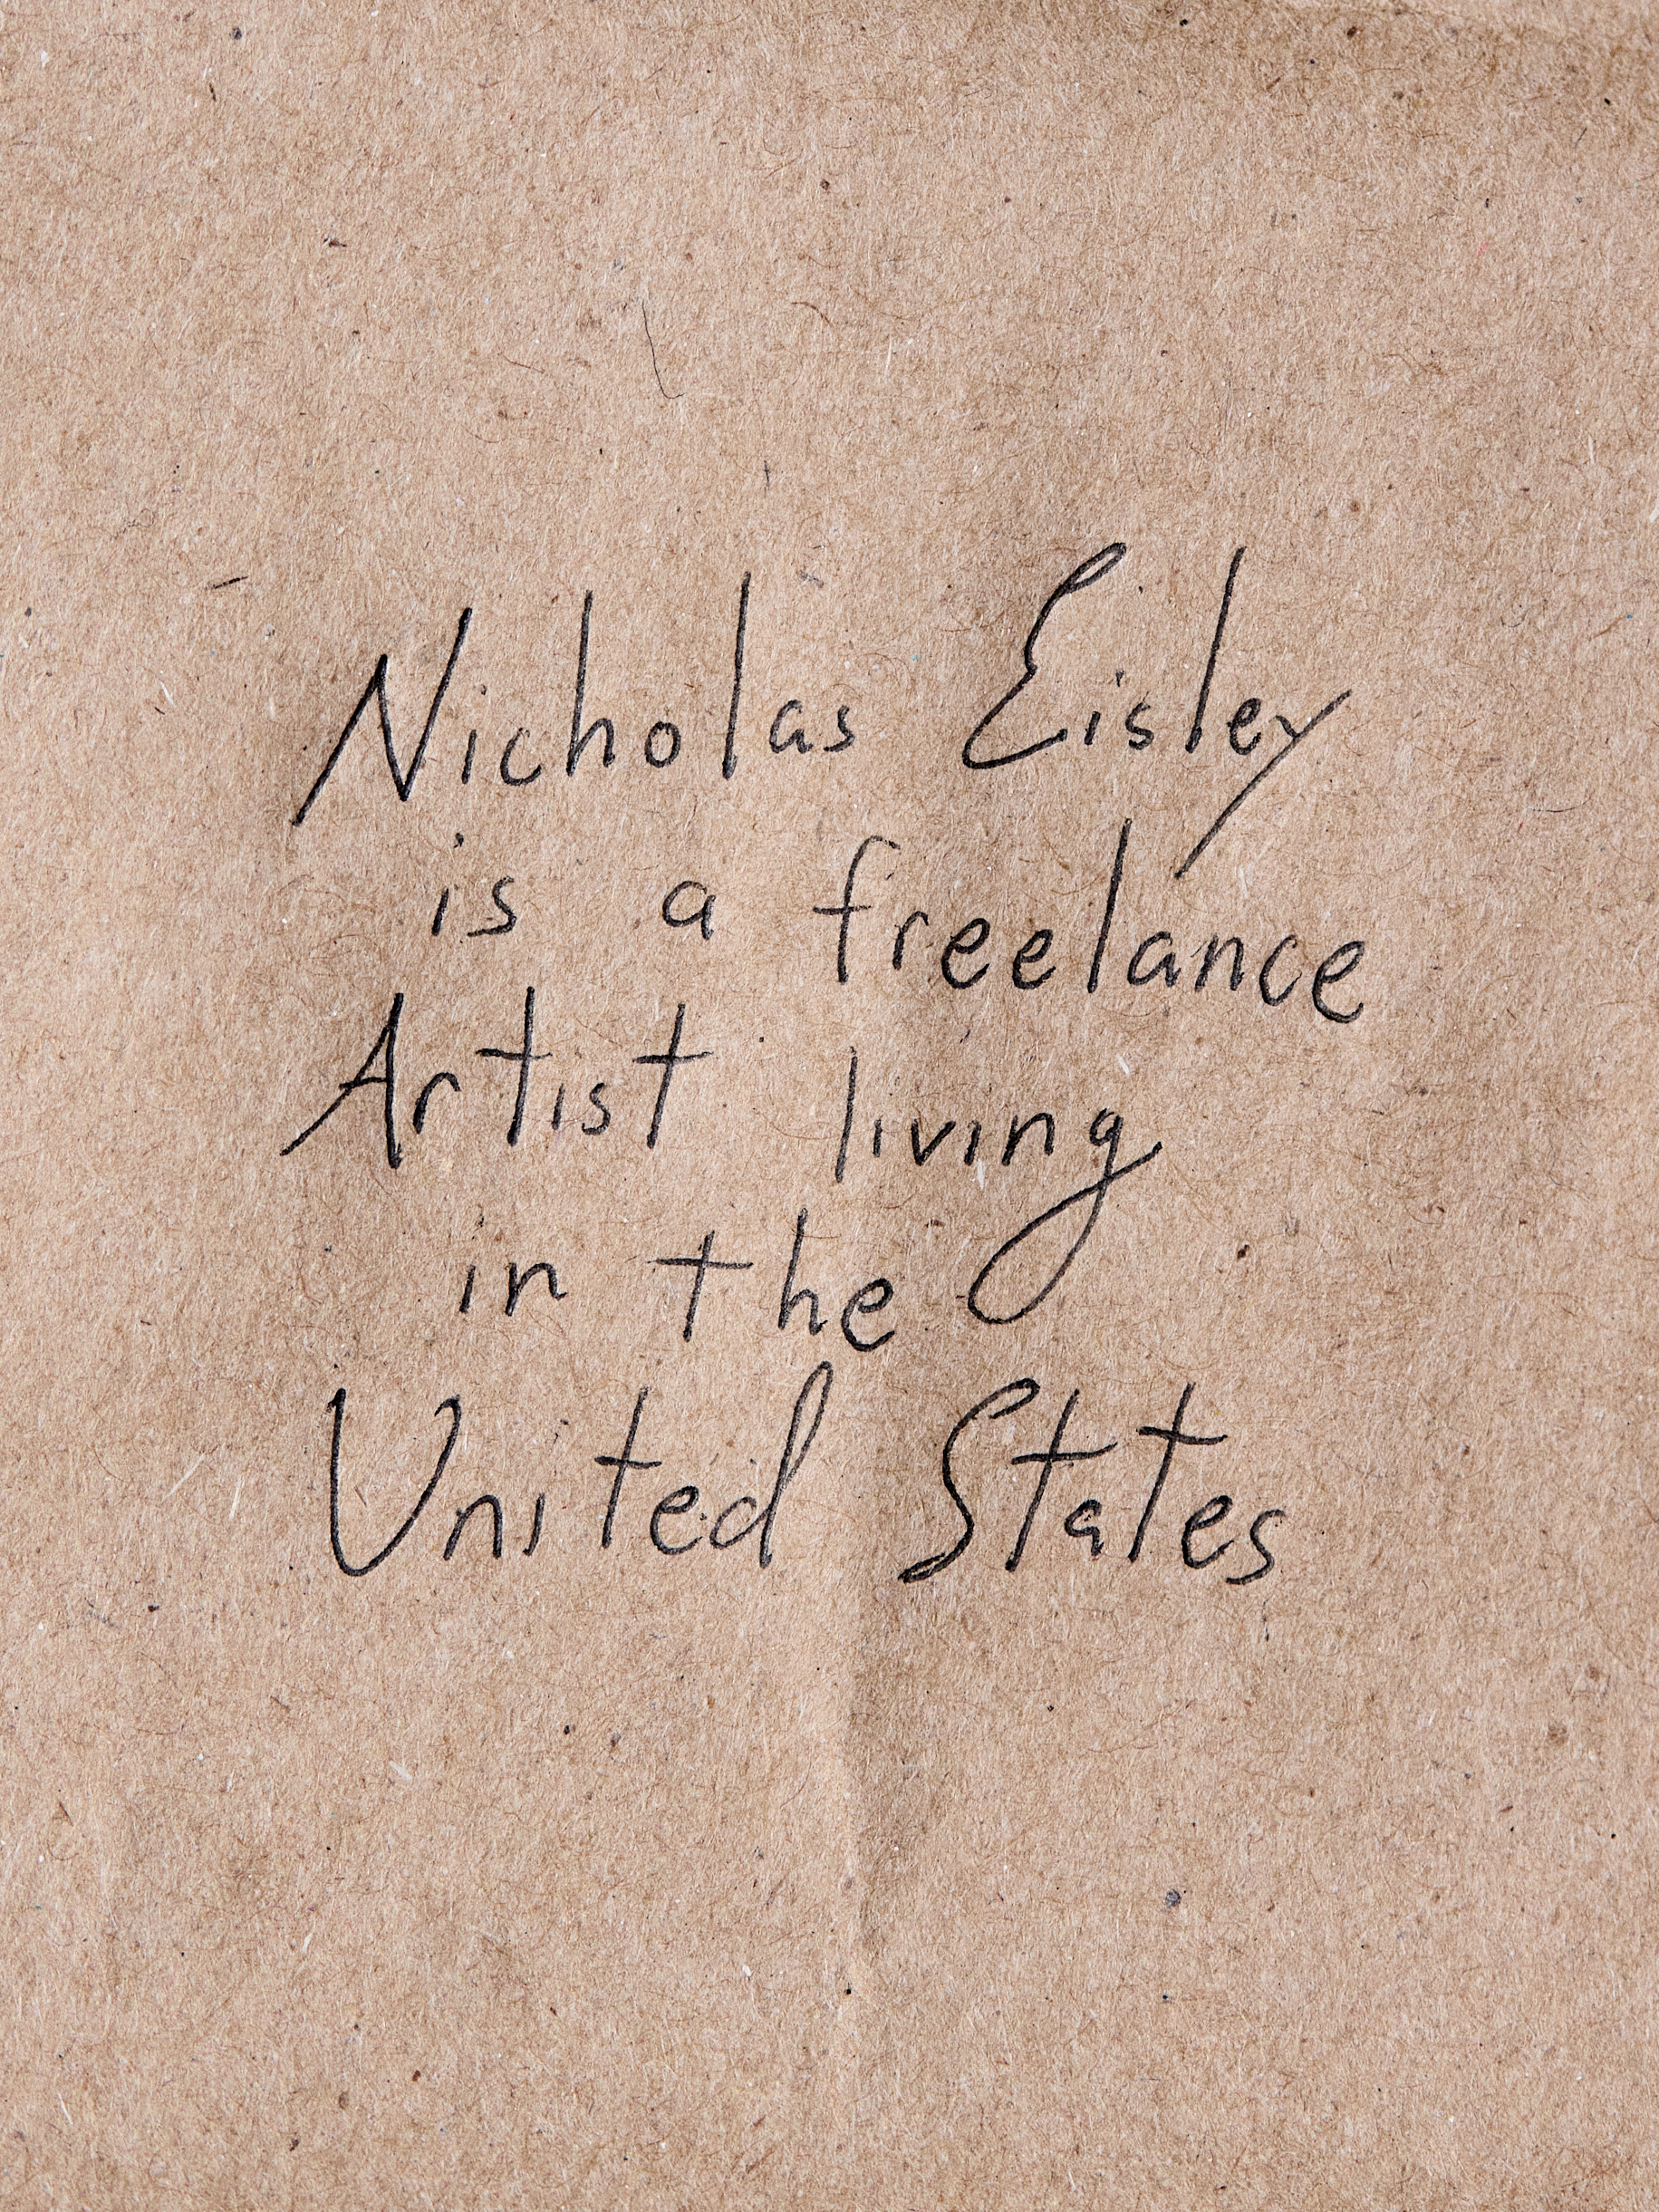 Nicholas Eisley
is a freelance
Artist living
in the
United States